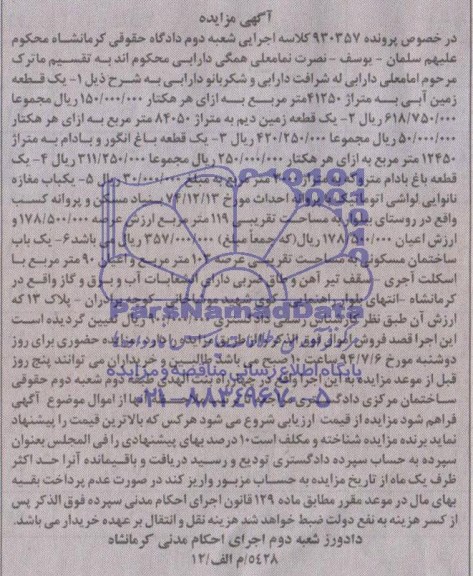 آگهی مزایده
در خصوص پرونده ۹۳۰۳۵۷ کلاسه اجرایی شعبه دوم دادگاه حقوقی کرمانشاه محکوم
علیهم سلمان - یوسف - نصرت نمامعلی همگی دارابی محکوم اند به تقسیم ماترک
مرحوم امامعلی دارابی له شرافت دارابی و شکربانو دارابی به شرح ذیل ۱- یک قطعه
زمین آبی به متراژ ۴۱۲۵۰متر مربع به ازای هر هکتار ۱۵۰/۰۰۰/۰۰۰ ریال مجموعا
۶۱۸/۷۵۰/۰۰۰ ریال ۲- یک قطعه زمین دیم به متراژ ۸۴۰۵۰ متر مربع به ازای هر هکتار
۵۰/۰۰۰/۰۰۰ ریال مجموعا ۴۲۰/۲۵۰/۰۰۰ ریال ۳- یک قطعه باغ انگور و بادام به متراژ
۱۲۴۵۰ متر مربع به ازای هر هکتار ۲۵۰/۰۰۰/۰۰۰ ریال مجموعا ۳۱۱/۲۵۰/۰۰۰ ریال ۴- یک
قطعه باغ بادام متروکه به متراژ متر مربع به مبلغ ۳۰/۰۰۰/۰۰۰ ریال ۵- یکباب مغازه
نانوایی لواشی اتوماتیک با پروانه احداث مورخ ۷۴/۱۲/۱۳ بنیاد مسکن و پروانه کسب
واقع در روستای به مساحت تقریبی ۱۱۹ متر مربع ارزش عرصه ۱۷۸/۵۰۰/۰۰۰ و
ارزش اعیان ۱۷۸/۵۰۰/۰۰۰ ریال(که جمعاً مبلغ) ۳۵۷/۰۰۰/۰۰۰ ریال می باشد ۶- یک باب
ساختمان مسکونی به مساحت تقریبی عرصه ۱۰۲ متر مربع و اعیان ۹۰ متر مربع با
اسکلت آجری - سقف تیر آهن و طاق ضربی دارای انشعابات آب و برق و گاز واقع در
کرمانشاه - انتهای بلوار راهنمایی - کوی شهید - کوچه برادران - پلاک ۱۳ که
ارزش آن طبق نظر کارشناس رسمی دادگستری ریال تعیین گردیده است
این اجرا قصد فروش اموال فوق الذکر را از طریق مزایده را دارد مزایده حضوری برای روز
دوشنبه مورخ ۹۴/۷/۶ ساعت ۱۰ صبح می باشد طالبین و خریداران می توانند پنج روز
قبل از موعد مزایده به این اجرا واقع در چهارراه بنت الهدی طبقه دوم شعبه دوم حقوقی
ساختمان مرکزی دادگستری از اموال موضوع آگهی
فراهم شود مزایده از قیمت ارزیابی شروع می شود هرکس که بالاترین قیمت را پیشنهاد
نماید برنده مزایده شناخته و مکلف است ۱۰ درصد بهای پیشنهادی را فی المجلس بعنوان
سپرده به حساب سپرده دادگستری تودیع و رسید دریافت و باقیمانده آنرا حد اکثر
ظرف یک ماه از تاریخ مزایده به حساب مزبور واریز کند در صورت عدم پرداخت بقیه
بهای مال در موعد مقرر مطابق ماده ۱۲۹ قانون اجرای احکام مدنی سپرده فوق الذکر پس
از کسر هزینه به نفع دولت ضبط خواهد شد هزینه نقل و انتقال بر عهده خریدار می باشد.
دادورز شعبه دوم اجرای احکام مدنی کرمانشاه
۵۴۲۸/م الف/۱۲
ParsNamadData
پایگاه اطلاع رسانی مناقصه و مزایده
۰۲۱-۸۸۳۴۹۶۷۰-۵